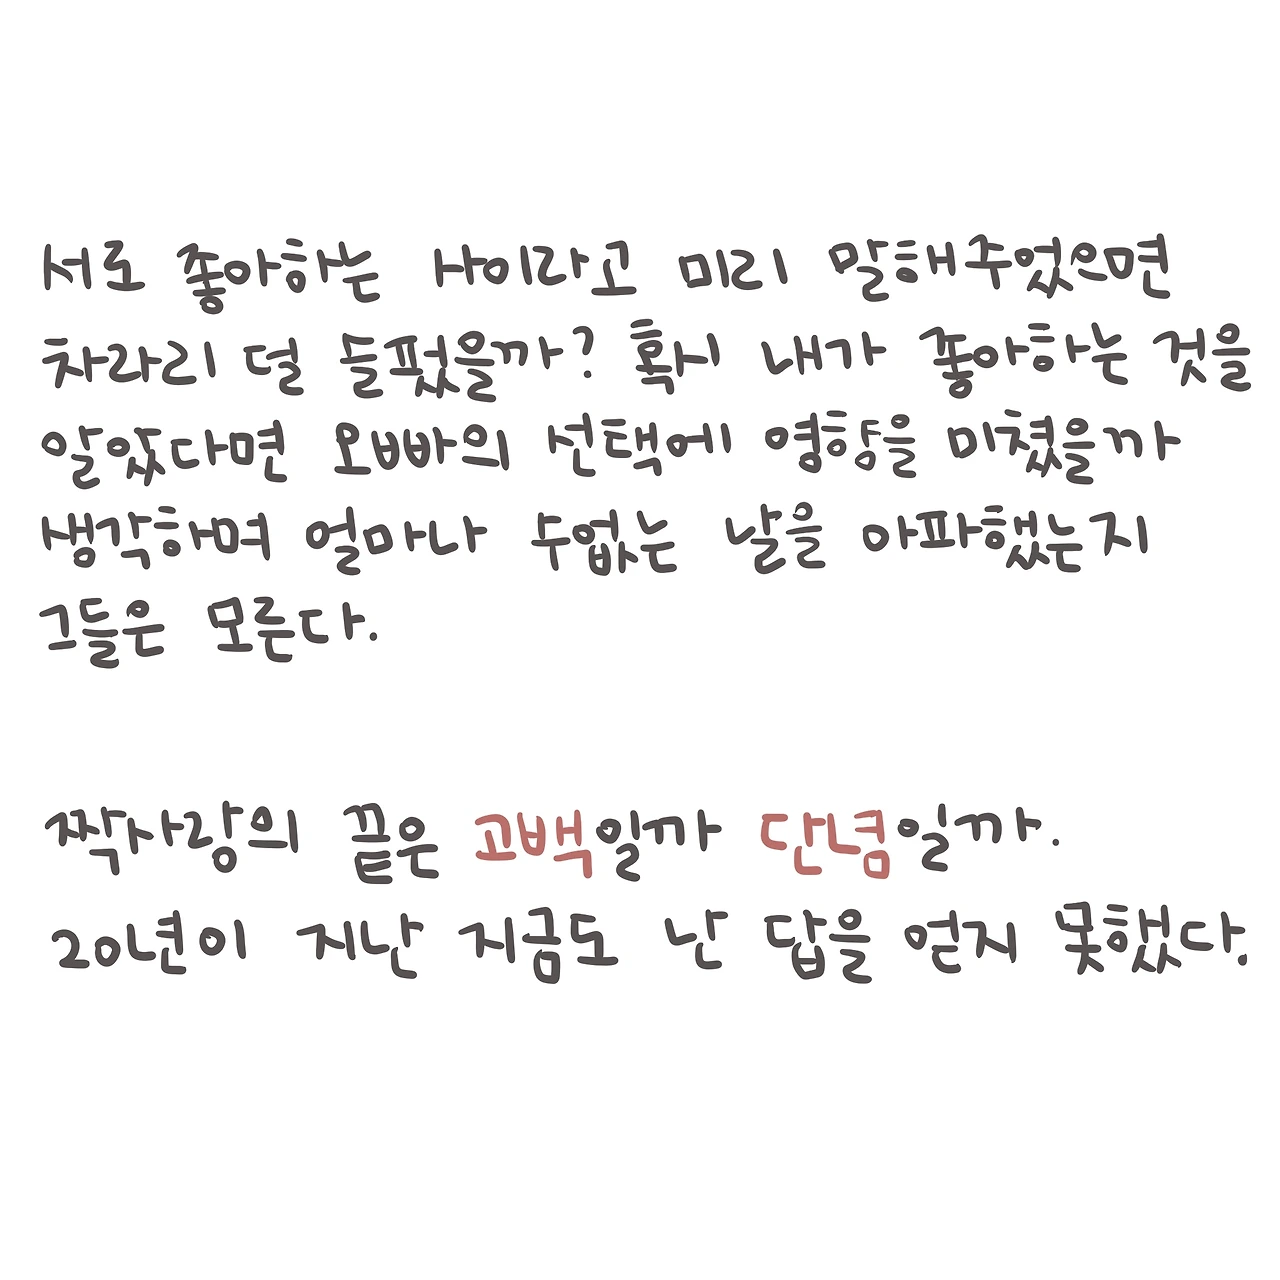 서로 좋아하는 사이라고 미리 말해주었으면
차라리 덜 슬펐을까? 혹시 내가 좋아하는 것을
알았다면 오빠의 선택에 영향을 미쳤을까
생각하며 얼마나 수없는 날을 아파했는지
그들은 모른다.
짝사랑의 끝은 고백일까 단념일까.
20년이 지난 지금도 난 답을 얻지 못했다.